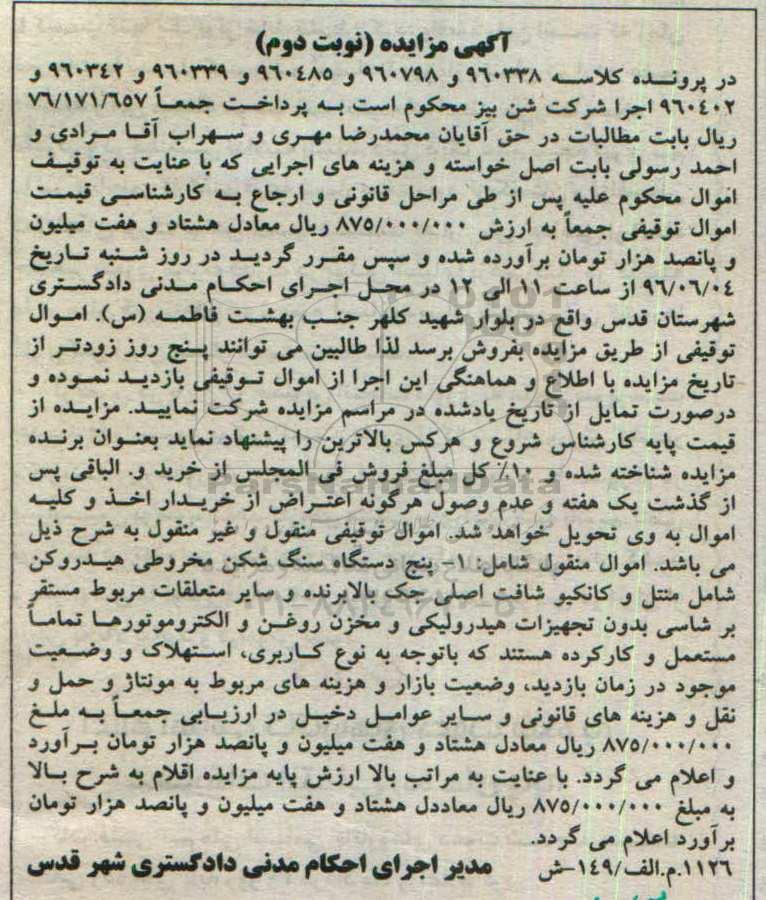 آگهی مزایده (نوبت دوم)
در پرونده کلاسه ۹۶۰۳۳۸ و ۹۶۰۷۹۸ و ۹۶۰۴۸۵ و ۹۶۰۳۳۹ و ۹۶۰۳۴۲ و
۹۶۰۴۰۲ اجرا شرکت شن بیز محکوم است به پرداخت جمعاً ۷۶/۱۷۱/۶۵۷
ریال بابت مطالبات در حق آقایان محمدرضا مهری و سهراب آقا مرادی و
احمد رسولی بابت اصل خواسته و هزینه های اجرایی که با عنایت به توقیف
اموال محکوم علیه پس از طی مراحل قانونی و ارجاع به کارشناسی قیمت
اموال توقیفی جمعاً به ارزش ۸۷۵/۰۰۰/۰۰۰ ریال معادل هشتاد و هفت میلیون
و پانصد هزار تومان برآورده شده و سپس مقرر گردید در روز شنبه تاریخ
۹۶/۰۶/۰۴ از ساعت ۱۱ الی ۱۲ در محل اجرای احکام مدنی دادگستری
شهرستان قدس واقع در بلوار شهید کلهر جنب بهشت فاطمه (س). اموال
توقیفی از طریق مزایده بفروش برسد لذا طالبین می توانند پنج روز زودتر از
تاریخ مزایده با اطلاع و هماهنگی این اجرا از اموال توقیفی بازدید نموده و
درصورت تمایل از تاریخ یادشده در مراسم مزایده شرکت نمایید. مزایده از
قیمت پایه کارشناس شروع و هرکس بالاترین را پیشنهاد نماید بعنوان برنده
مزایده شناخته شده و ۱۰٪ کل مبلغ فروش فی المجلس از خرید و. الباقی پس
از گذشت یک هفته و عدم وصول هرگونه اعتراض از خریدار اخذ و کلیه
اموال به وی تحویل خواهد شد. اموال توقیفی منقول و غیر منقول به شرح ذیل
می باشد. اموال منقول شامل: ۱- پنج دستگاه سنگ شکن مخروطی هیدروکن
شامل منتل و کانکیو شافت اصلی جک بالابرنده و سایر متعلقات مربوط مستقر
بر شاسی بدون تجهیزات هیدرولیکی و مخزن روغن و الکتروموتورها تماماً
مستعمل و کارکرده هستند که باتوجه به نوع کاربری، استهلاک و وضعیت
موجود در زمان بازدید، وضعیت بازار و هزینه های مربوط به مونتاژ و حمل و
نقل و هزینه های قانونی و سایر عوامل دخیل در ارزیابی جمعاً به ملغ
۸۷۵/۰۰۰/۰۰۰ ریال معادل هشتاد و هفت میلیون و پانصد هزار تومان برآورد
و اعلام می گردد. با عنایت به مراتب بالا ارزش پایه مزایده اقلام به شرح بالا
به مبلغ ۸۷۵/۰۰۰/۰۰۰ ریال معاددل هشتاد و هفت میلیون و پانصد هزار تومان
برآورد اعلام می گردد.
۱۱۲۶.م.الف/۱۴۹-ش مدیر اجرای احکام مدنی دادگستری شهر قدس